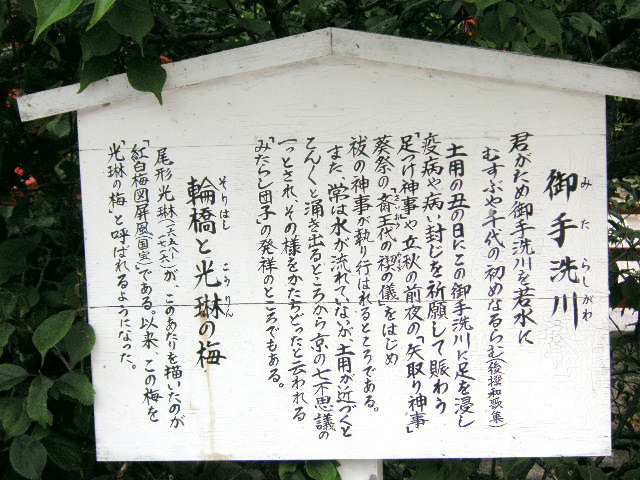 御手洗川
みたらしがわ
君がため御手洗川を若水に
むすぶや千代の初めなるらむ(後撰和歌集)
土用の丑の日にこの御手洗川に足を浸し
疫病や病い封じを祈願して賑わう
「足つけ神事」や立秋の前夜の「矢取り神事」
葵祭の「斎王代の禊の儀」をはじめ
祓の神事が執り行はれるところである。
また、常は水が流れていないが、土用が近づくと
こんこんと涌き出るところから京の七不思議の
一つとされ、その様をかたどったと云われる
「みたらし団子」の発祥のところでもある。
輪橋と光琳の梅
そりはし
こうりん
尾形光琳(一六五八〜一七一六)が、このあたりを描いたのが
「紅白梅図屏風(国宝)」である。以来、この梅を
「光琳の梅」と呼ばれるようになった。